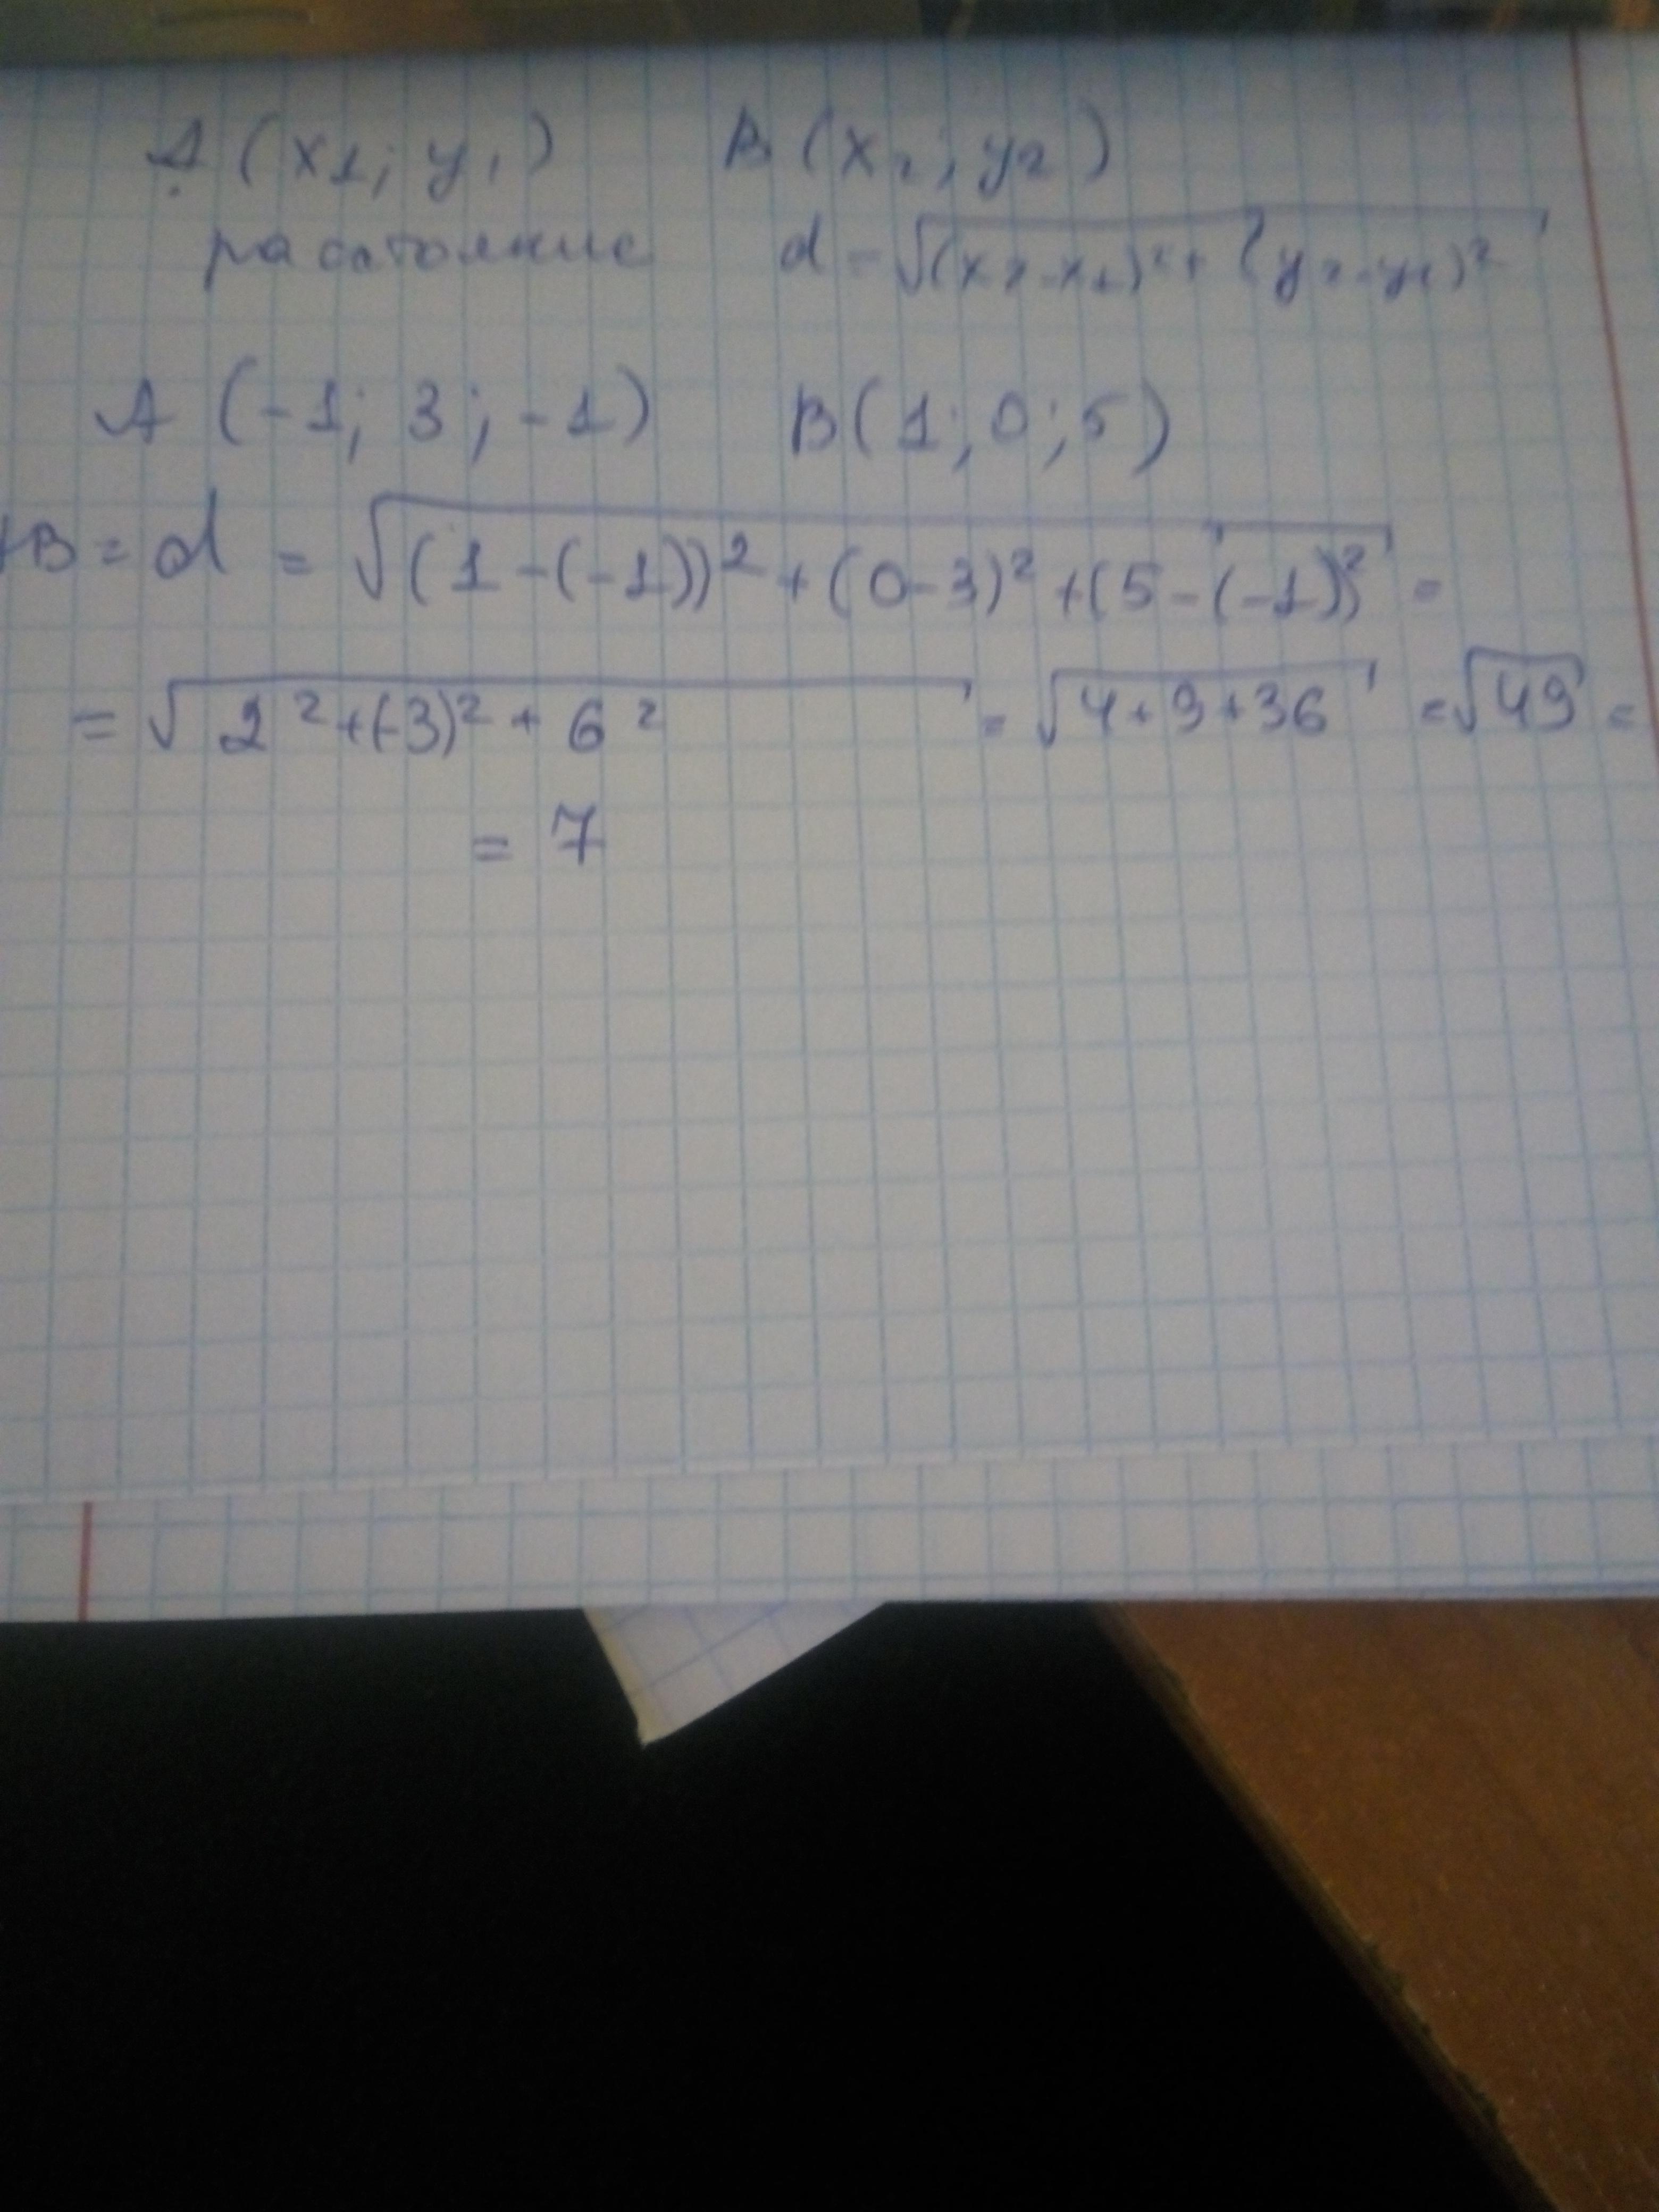 A (x1; y1) B (x2; y2)
расстояние d = √(x2-x1)² + (y2-y1)²
A (-1; 3; -1) B(1; 0; 5)
AB = d = √(1-(-1))² + (0-3)² + (5-(-1))² =
= √2² + (-3)² + 6² = √4+9+36 = √49 =
= 7